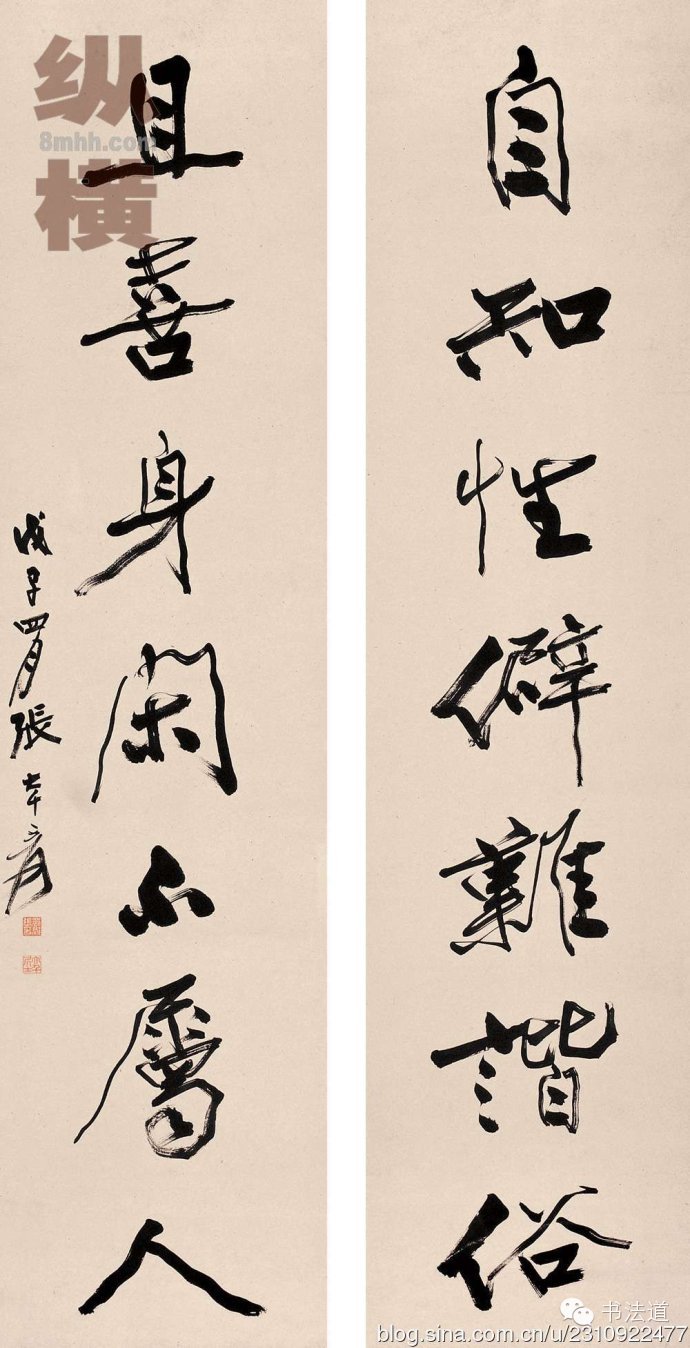 自知性僻難諧俗
且喜身閑不屬人
戊子四月張大千爰
纵横
8mhh.com
书法道
blog.sina.com.cn/u/2310922477